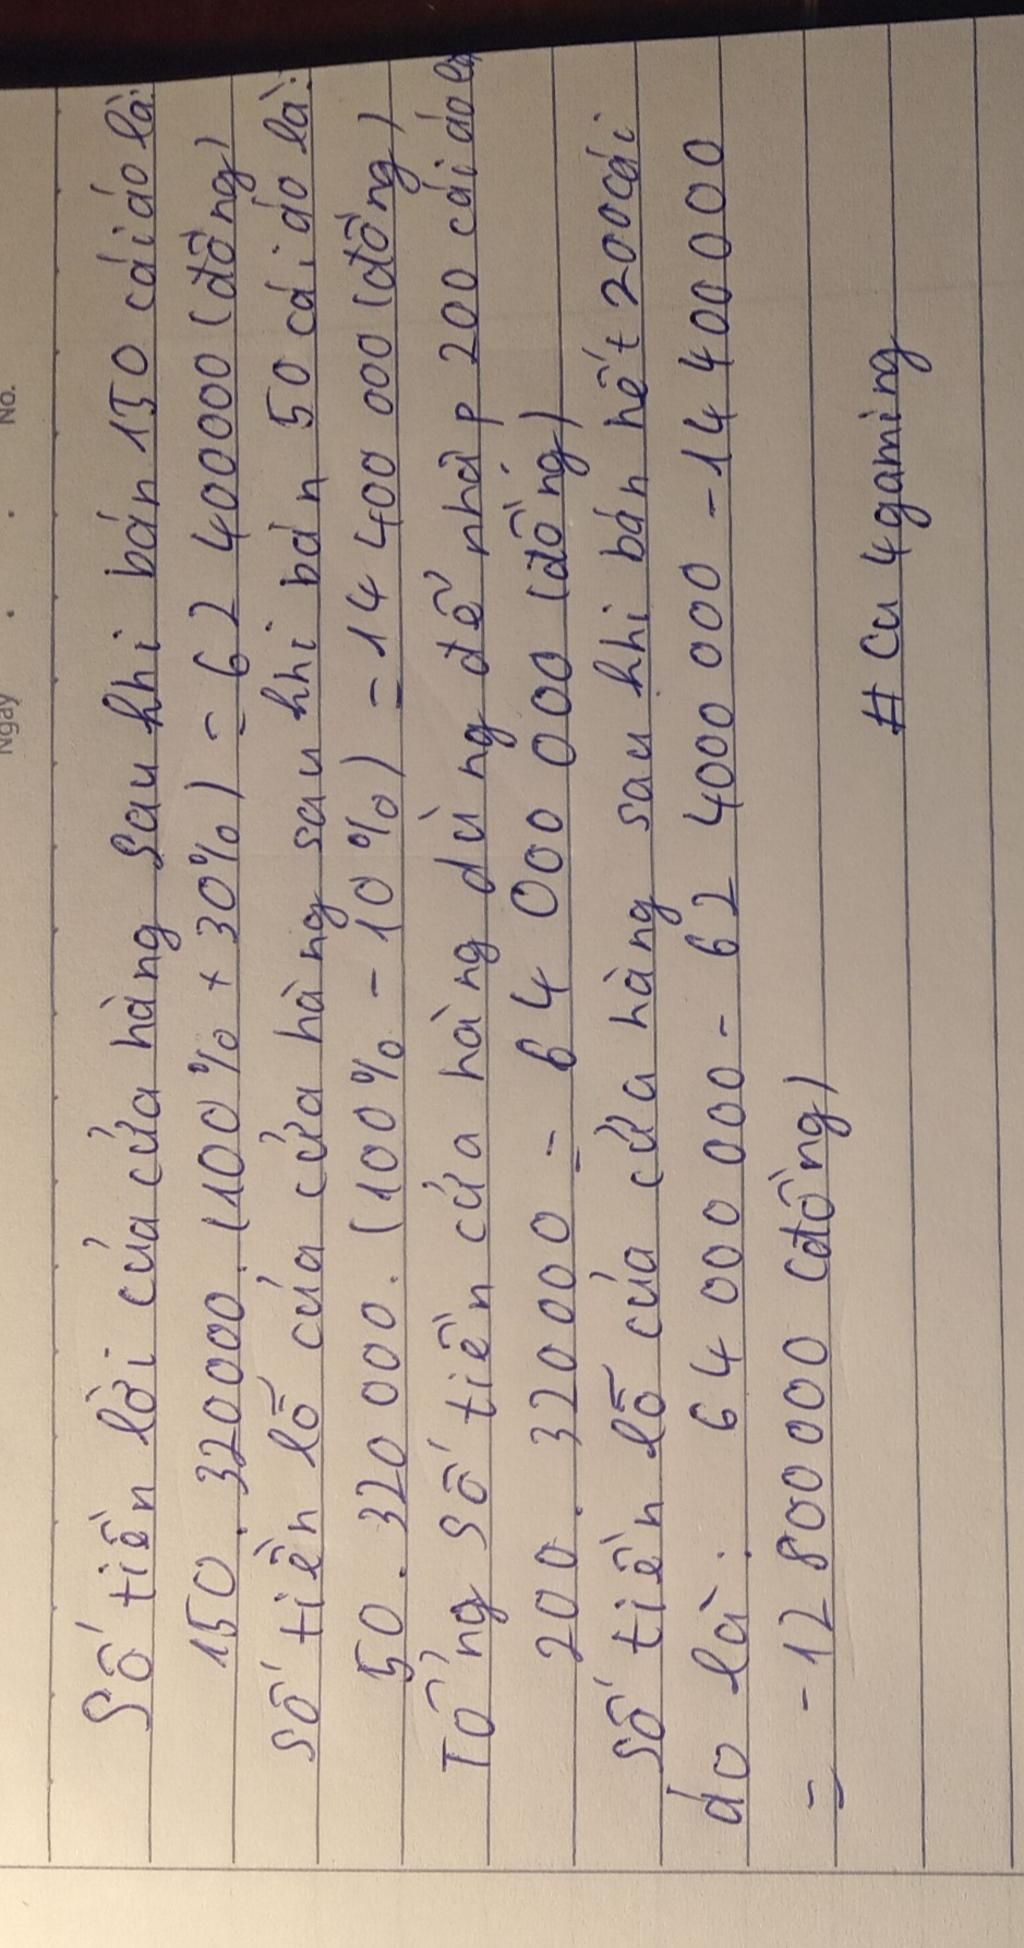 No.
Ngày
Số tiền lời của cửa hàng sau khi bán 150 cái áo là:
150 . 320000 . (100% + 30%) = 62 400000 (đồng)
Số tiền lỗ của cửa hàng sau khi bán 50 cái áo là:
50 . 320 000 . (100% - 10%) = 14 400 000 (đồng)
Tổng số tiền cửa hàng dùng để nhập 200 cái áo là
200 . 320000 = 64 000 000 (đồng)
Số tiền lỗ của cửa hàng sau khi bán hết 200 cái
áo là: 64 000 000 - 62 4000 000 - 14 400000
= -12 800000 (đồng)
# Cu 4gaming